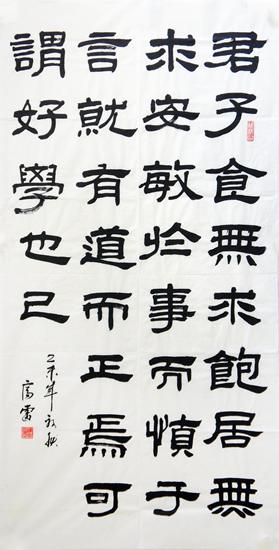 君子食無求飽居無
求安敏於事而慎于
言就有道而正焉可
謂好學也已
乙未年初秋
高雷